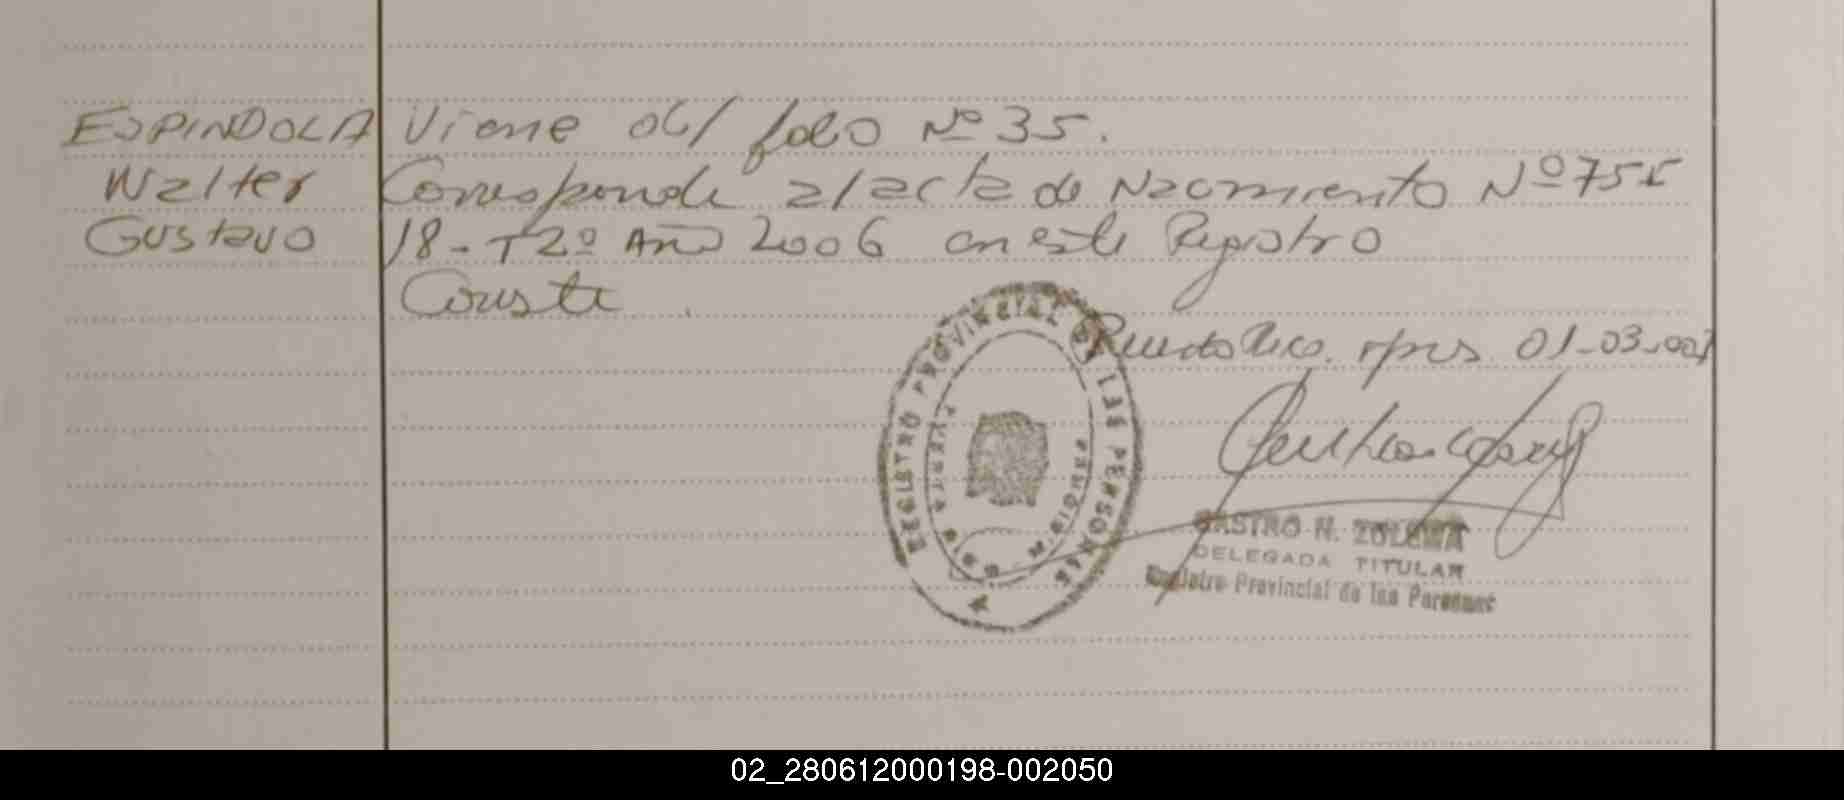 ESPINDOLA Viene del folio Nº 35.
Walter Corresponde al acta de Nacimiento Nº 755
Gustavo 18 - T2º Año 2006 en este Registro
Conste.
Puerto Rico, 01-03-007
REGISTRO PROVINCIAL DE LAS PERSONAS
CASTRO N. ZULEMA
DELEGADA TITULAR
Registro Provincial de las Personas
02_280612000198-002050